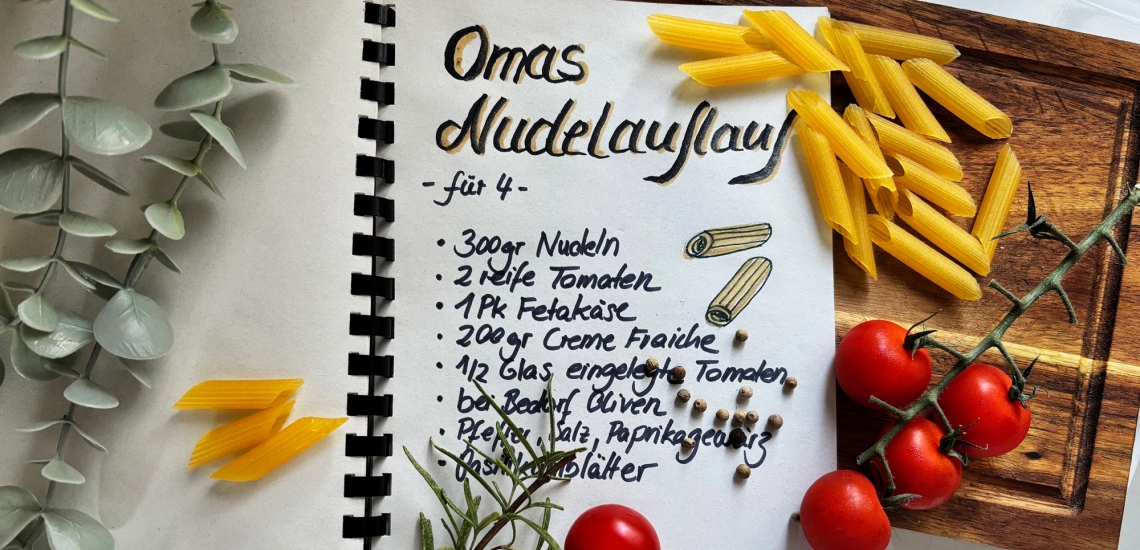 Omas
Nudelauflauf
- für 4 -
• 300gr Nudeln
• 2 reife Tomaten
• 1 Pk Fetakäse
• 200gr Creme Fraiche
• 1/2 Glas eingelegte Tomaten,
• bei Bedarf Oliven
• Pfeffer, Salz, Paprikagewürz
• Basilikumblätter